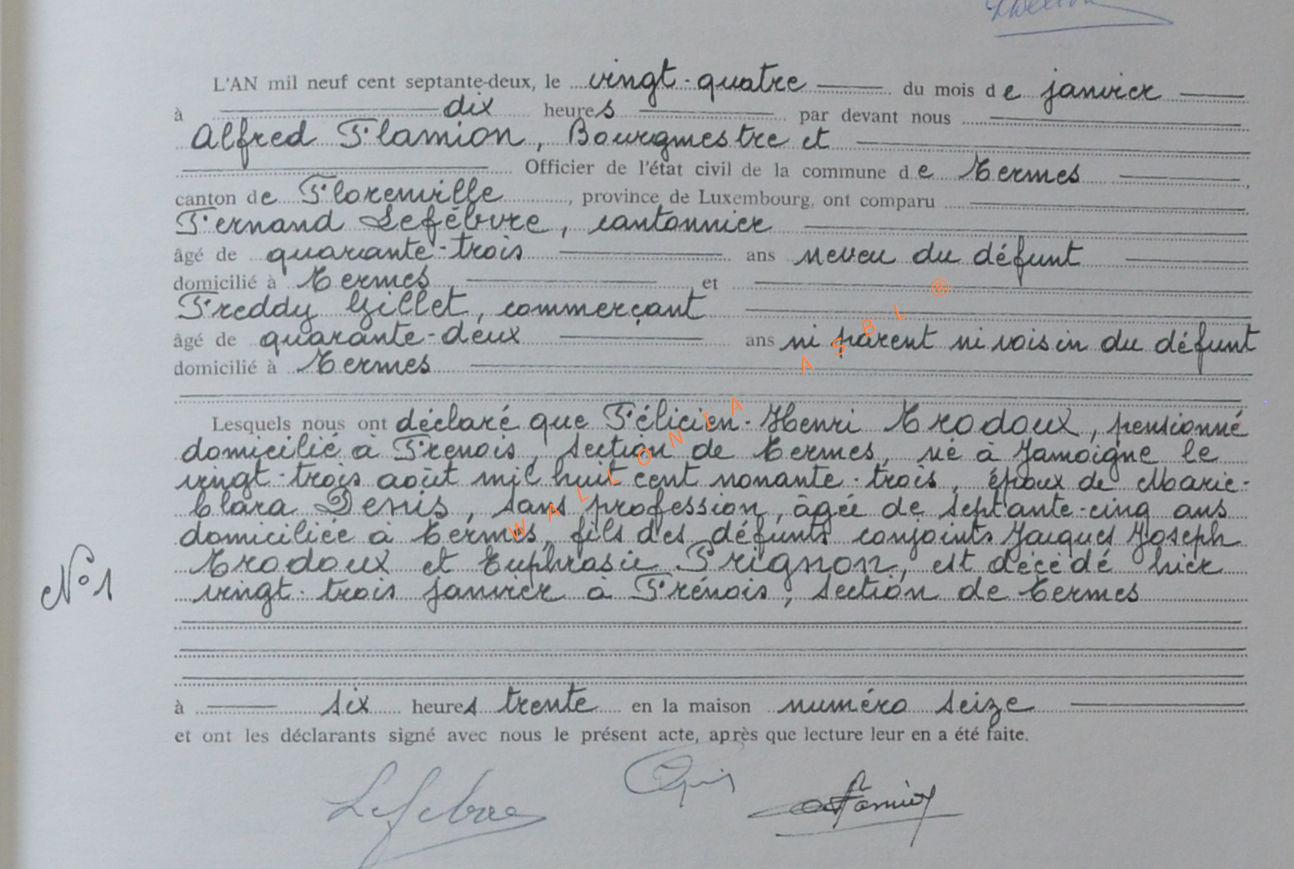 L'AN mil neuf cent septante-deux, le vingt-quatre du mois de janvier
à dix heures par devant nous
Alfred Flamion, Bourgmestre et
Officier de l'état civil de la commune de Termes
canton de Florenville, province de Luxembourg, ont comparu
Fernand Lefébvre, cantonnier
âgé de quarante-trois ans neveu du défunt
domicilié à Termes et
Freddy Gillet, commerçant
âgé de quarante-deux ans ni parent ni voisin du défunt
domicilié à Termes
Lesquels nous ont déclaré que Félicien-Henri Trodoux, pensionné
domicilié à Frenois, section de Termes, né à Jamoigne le
vingt-trois août mil huit cent nonante-trois, époux de Marie-
Clara Denis, sans profession, âgée de septante-cinq ans
domiciliée à Termes, fils des défunts conjoints Jacques Joseph
Trodoux et Euphrasie Frignon, est décédé hier
N°1
vingt-trois janvier à Frénois, section de Termes
à six heures trente en la maison numéro seize
et ont les déclarants signé avec nous le présent acte, après que lecture leur en a été faite.
Lefebvre
WALLONIA ASBL ®